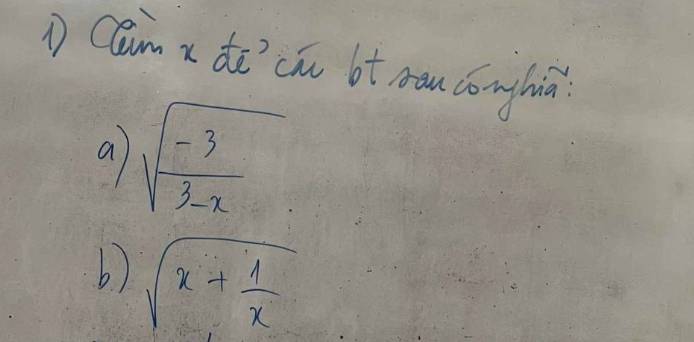 1) Tìm x để các bt sau có nghĩa:
a) √(-3/(3-x))
b) √(x + 1/x)